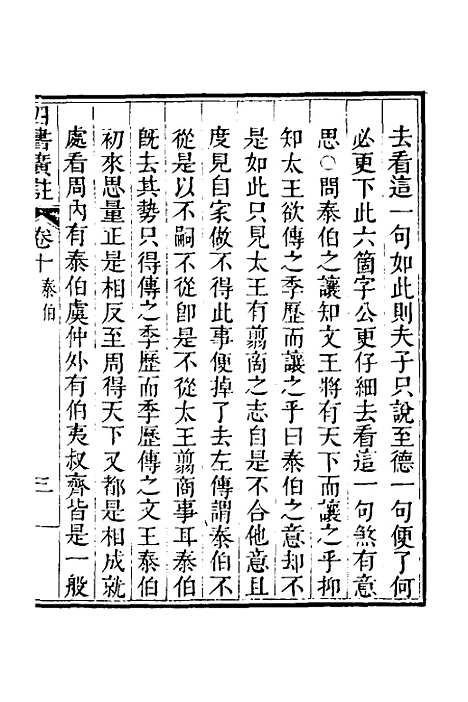 去看這一句如此則夫子只說至德一句便了何
必更下此六箇字公更仔細去看這一句煞有意
思○問泰伯之讓知文王將有天下而讓之乎抑
知太王欲傳之季歷而讓之乎曰泰伯之意却不
是如此只見太王有翦商之志自是不合他意且
度見自家做不得此事便掉了去左傳謂泰伯不
從是以不嗣不從卽是不從太王翦商事耳泰伯
旣去其勢只得傳之季歷而季歷傳之文王泰伯
初來思量正是相反至周得天下又都是相成就
處看周內有泰伯虞仲外有伯夷叔齊皆是一般
四書廣註 卷十 泰伯 三